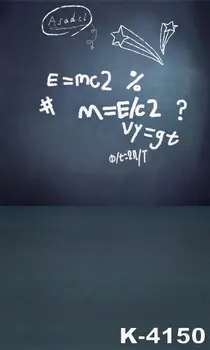 Asadcf
E=mc2 %
# M=E/c2 ?
Vy=gt
Φ/t=2π/T
K-4150